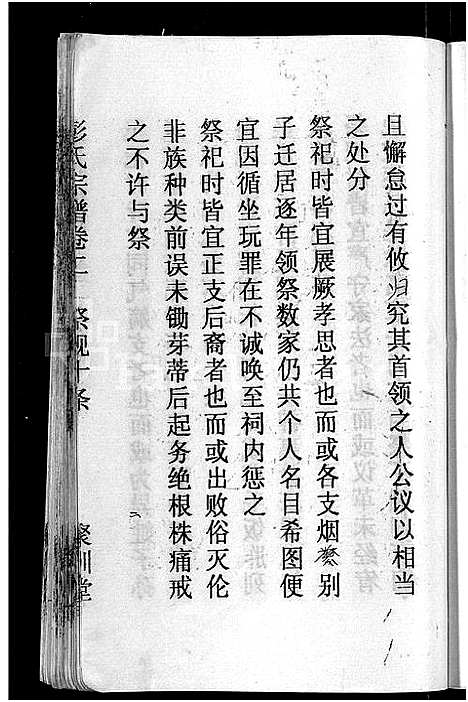 且懈怠过有攸归究其首领之人公议以相当
之处分
祭祀时皆宜展厥孝思者也而或各支烟繁别
子迁居逐年领祭数家仍共个人名目希图便
宜因循坐玩罪在不诚唤至祠内惩之
祭祀时皆宜正支后裔者也而或出败俗灭伦
非族种类前误未锄芽蒂后起务绝根株痛戒
之不许与祭
彭氏宗谱卷二 祭规十条 聚训堂